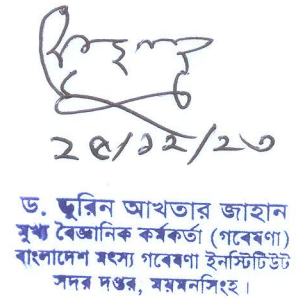 ২৫/১২/২৩
ড. দুরিন আখতার জাহান
মুখ্য বৈজ্ঞানিক কর্মকর্তা (গবেষণা)
বাংলাদেশ মৎস্য গবেষণা ইনস্টিটিউট
সদর দপ্তর, ময়মনসিংহ।